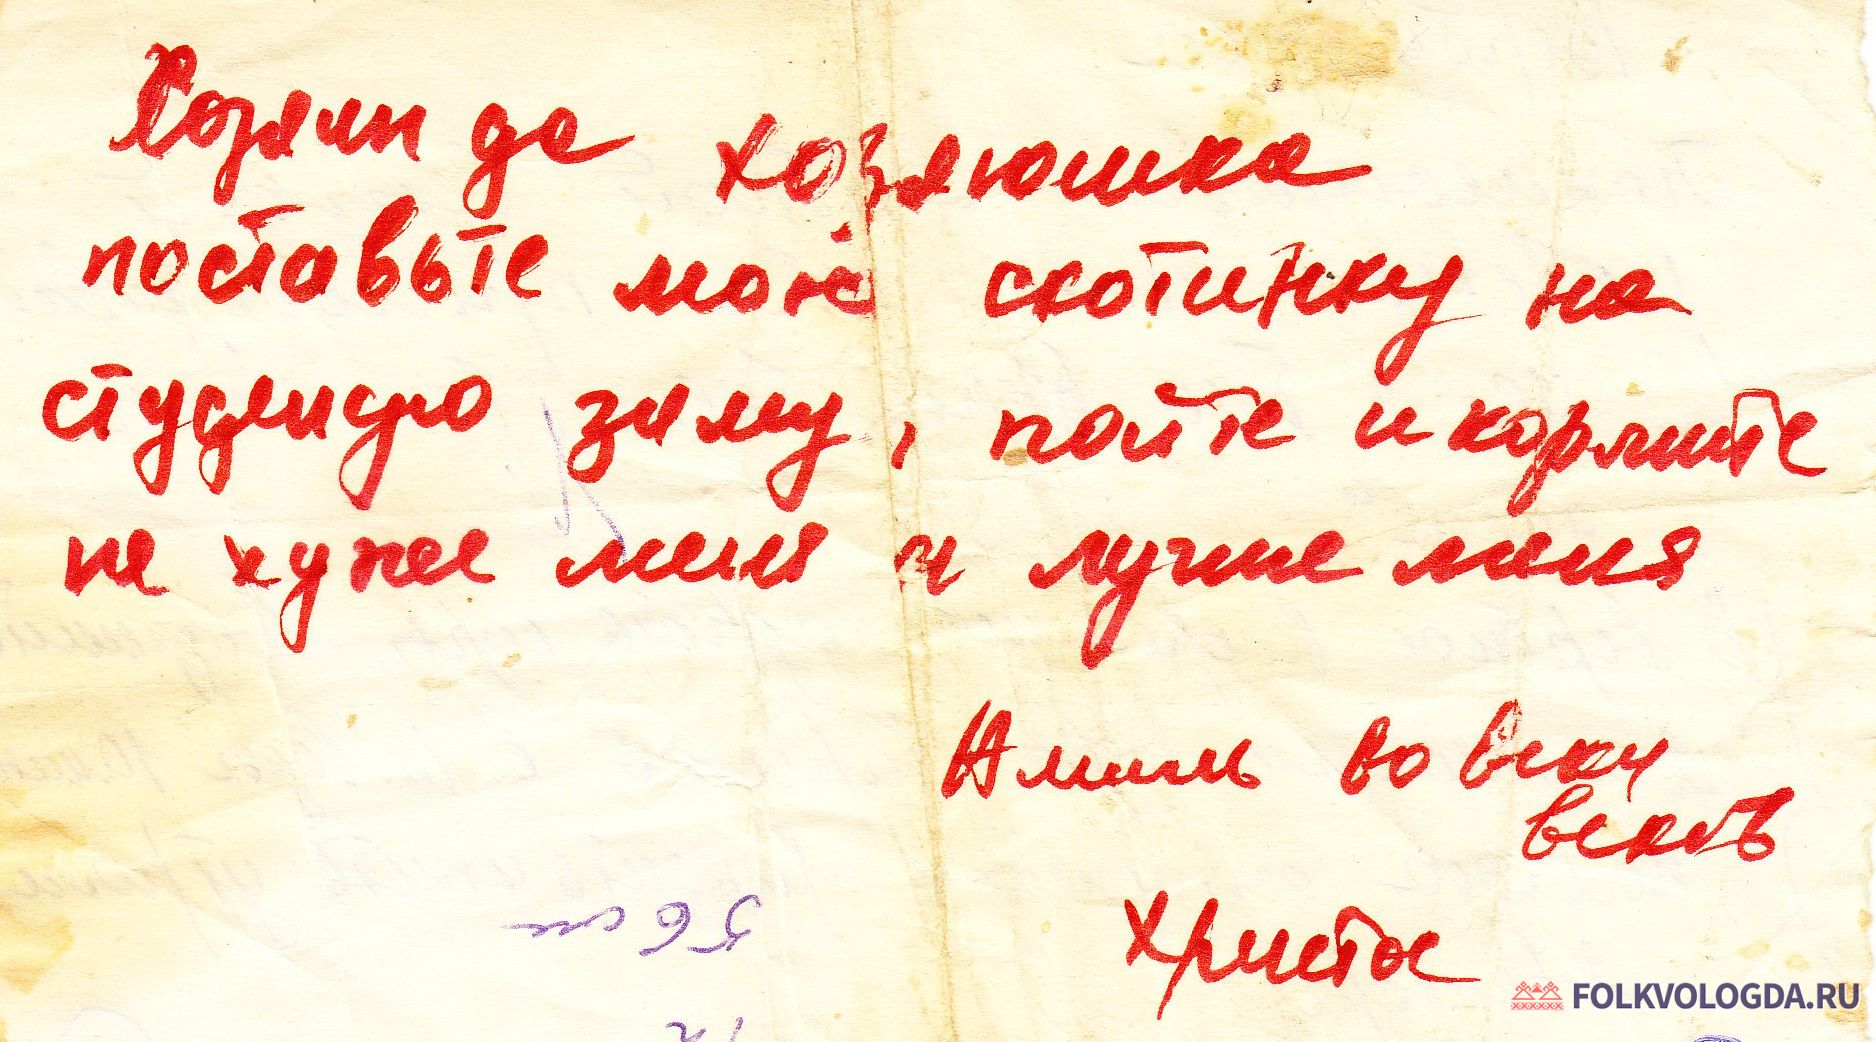 Хозяин да хозяюшка
поставьте мою скотинку на
студеную зиму, пойте и кормите
не хуже меня и лучше меня
Аминь во веки
веков
Христос
56 см
FOLKVOLOGDA.RU